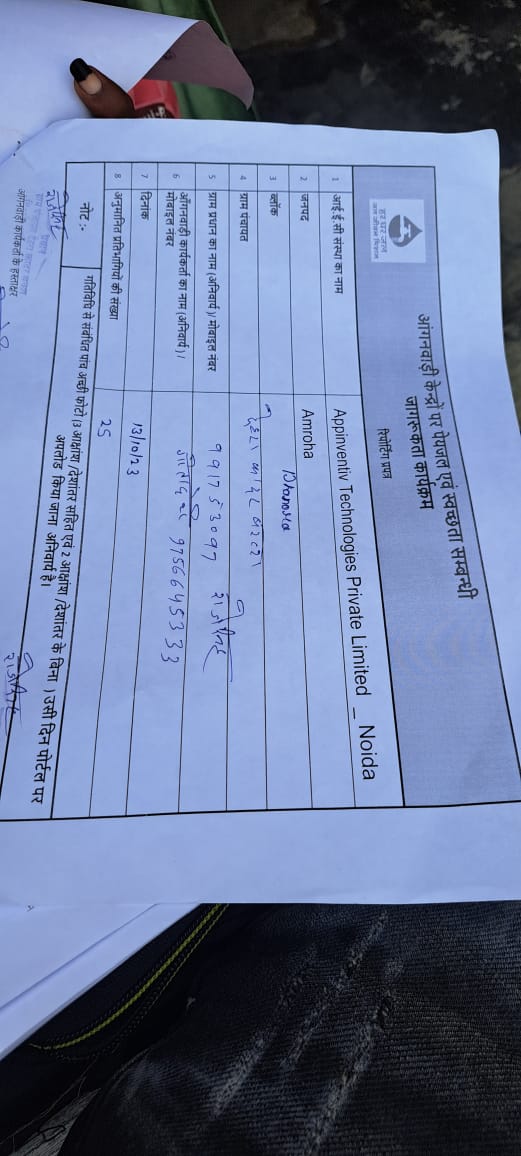 हर घर जल
जल जीवन मिशन
आंगनवाड़ी केन्द्रों पर पेयजल एवं स्वच्छता सम्बन्धी
जागरूकता कार्यक्रम
रिपोर्टिंग प्रपत्र
1 आई.ई.सी संस्था का नाम Appinventiv Technologies Private Limited _ Noida
2 जनपद Amroha
3 ब्लॉक Dhanora
4 ग्राम पंचायत
5 ग्राम प्रधान का नाम (अनिवार्य)/ मोबाइल नंबर
6 ऑगनवाड़ी कार्यकर्ता का नाम (अनिवार्य ) /
मोबाइल नंबर 9756645333
7 दिनांक 13/10/23
8 अनुमानित प्रतिभागियों की संख्या 25
नोट :- गतिविधि से संबंधित पांच अच्छी फोटो (3 आक्षांश /देशांतर सहित एवं 2 आक्षांश /देशांतर के बिना ) उसी दिन पोर्टल पर
अपलोड किया जाना अनिवार्य है।
आंगनवाड़ी कार्यकर्ता के हस्ताक्षर